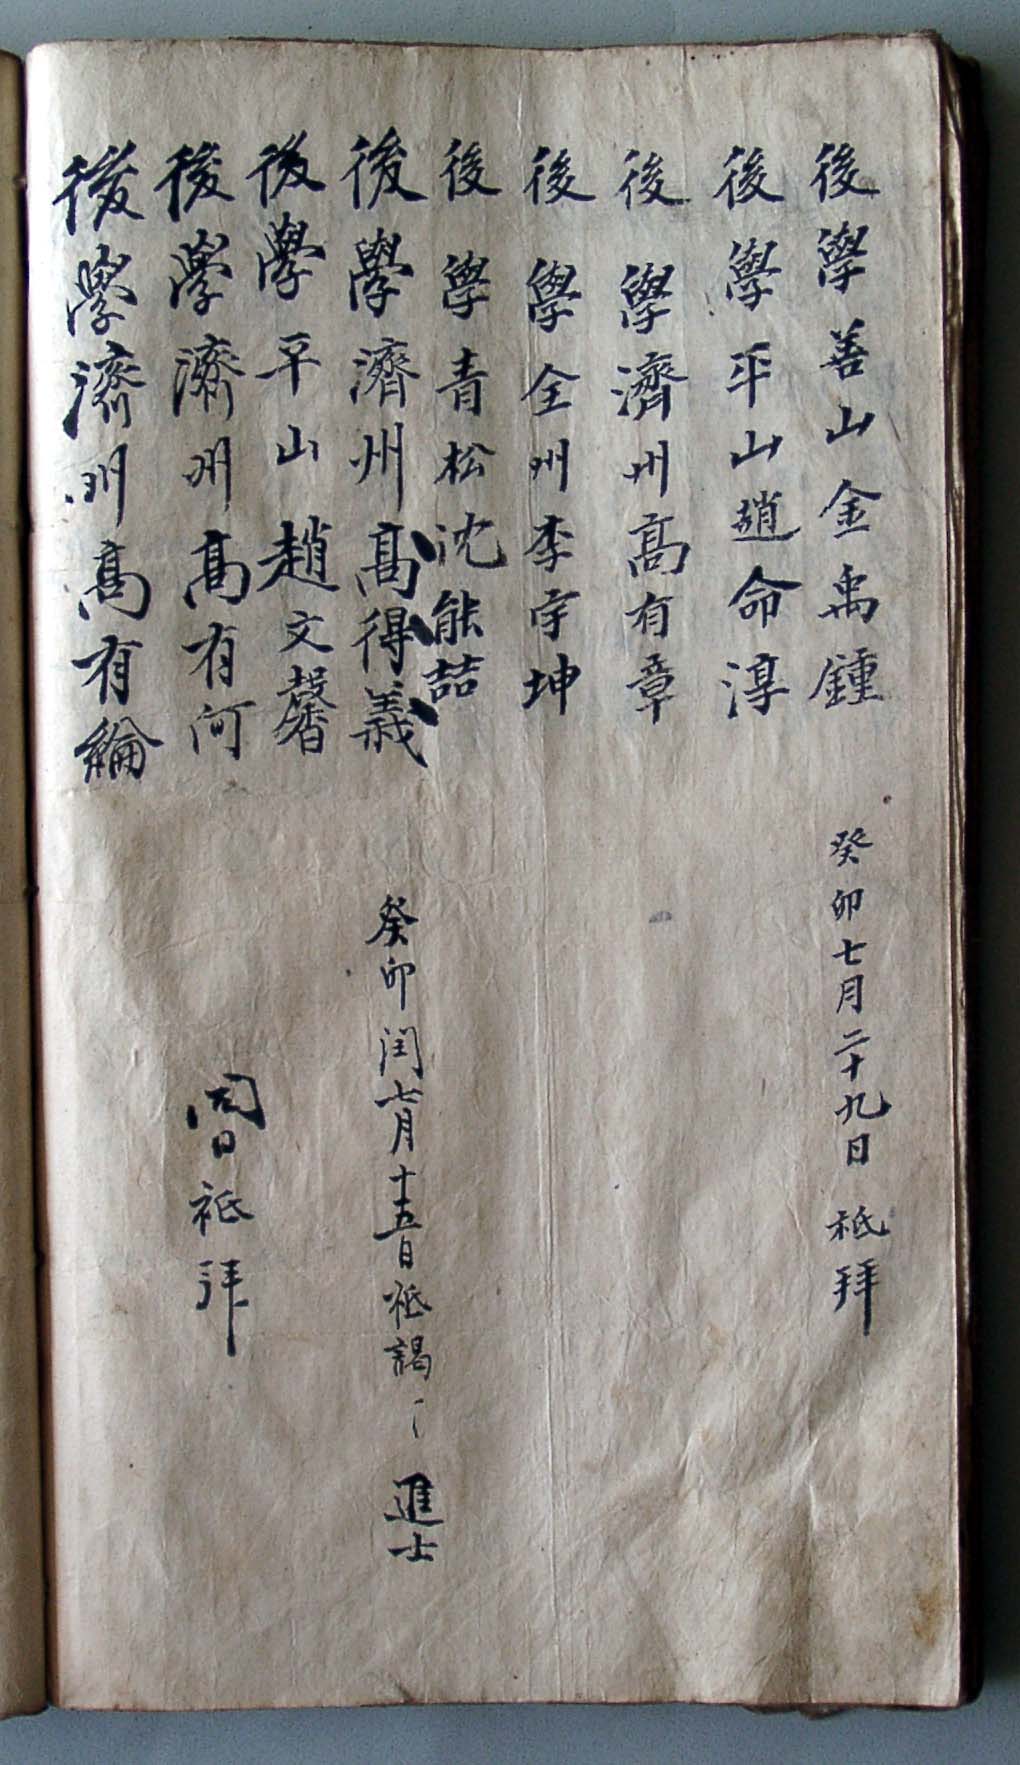 後學善山金禹鍾 癸卯七月二十九日 祗拜
後學平山趙命淳
後學濟州高有章
後學全州李宇坤
後學青松沈能喆
後學濟州高得義 癸卯閏七月十五日祗謁 進士
後學平山趙文馨
後學濟州高有河 同日祗拜
後學濟州高有綸